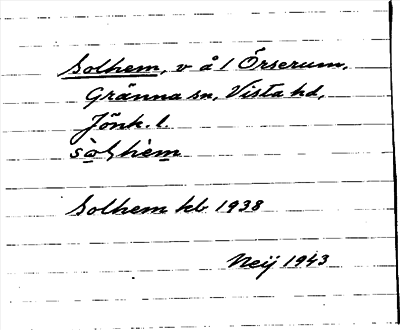 Solhem, v å 1 Örserum,
Gränna sn, Vista hd,
Jönk. l.
Solhem kb 1938
Neij 1943